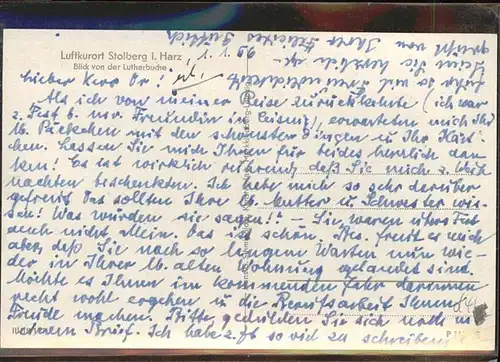 Luftkurort Stolberg i. Harz
Blick von der Lutherbuche
1.1.56
Lieber Herr Dr.!
Als ich von meiner Reise zurückkehrte (ich war
z. Fest b. mr. Freundin in Leisnig), erwarteten mich Ihr
lb. Päckchen mit den schönsten Dingen u. Ihr Kärt-
chen. Lassen Sie mich Ihnen für beides herzlich dan-
ken! Es ist wirklich rührend, daß Sie mich z. Weih-
nachten beschenkten. Ich habe mich so sehr darüber
gefreut. Das sollten Ihre lb. Mutter u. Schwester wis-
sen! Was würden sie sagen!! – Sie waren übers Fest
auch nicht allein. Das ist schön. Bes. freut es mich
aber, daß Sie nach so langem Warten nun wie-
der in Ihrer lb. alten Wohnung gelandet sind.
Möchte es Ihnen im kommenden Jahr darinnen
recht wohl ergehen u. die Berufsarbeit Ihnen
Freude machen. Bitte, gedulden Sie sich noch m.
Brief. Ich habe z. Zt. so viel zu schreiben
Seien Sie herzlich ge-
grüßt von Ihrer